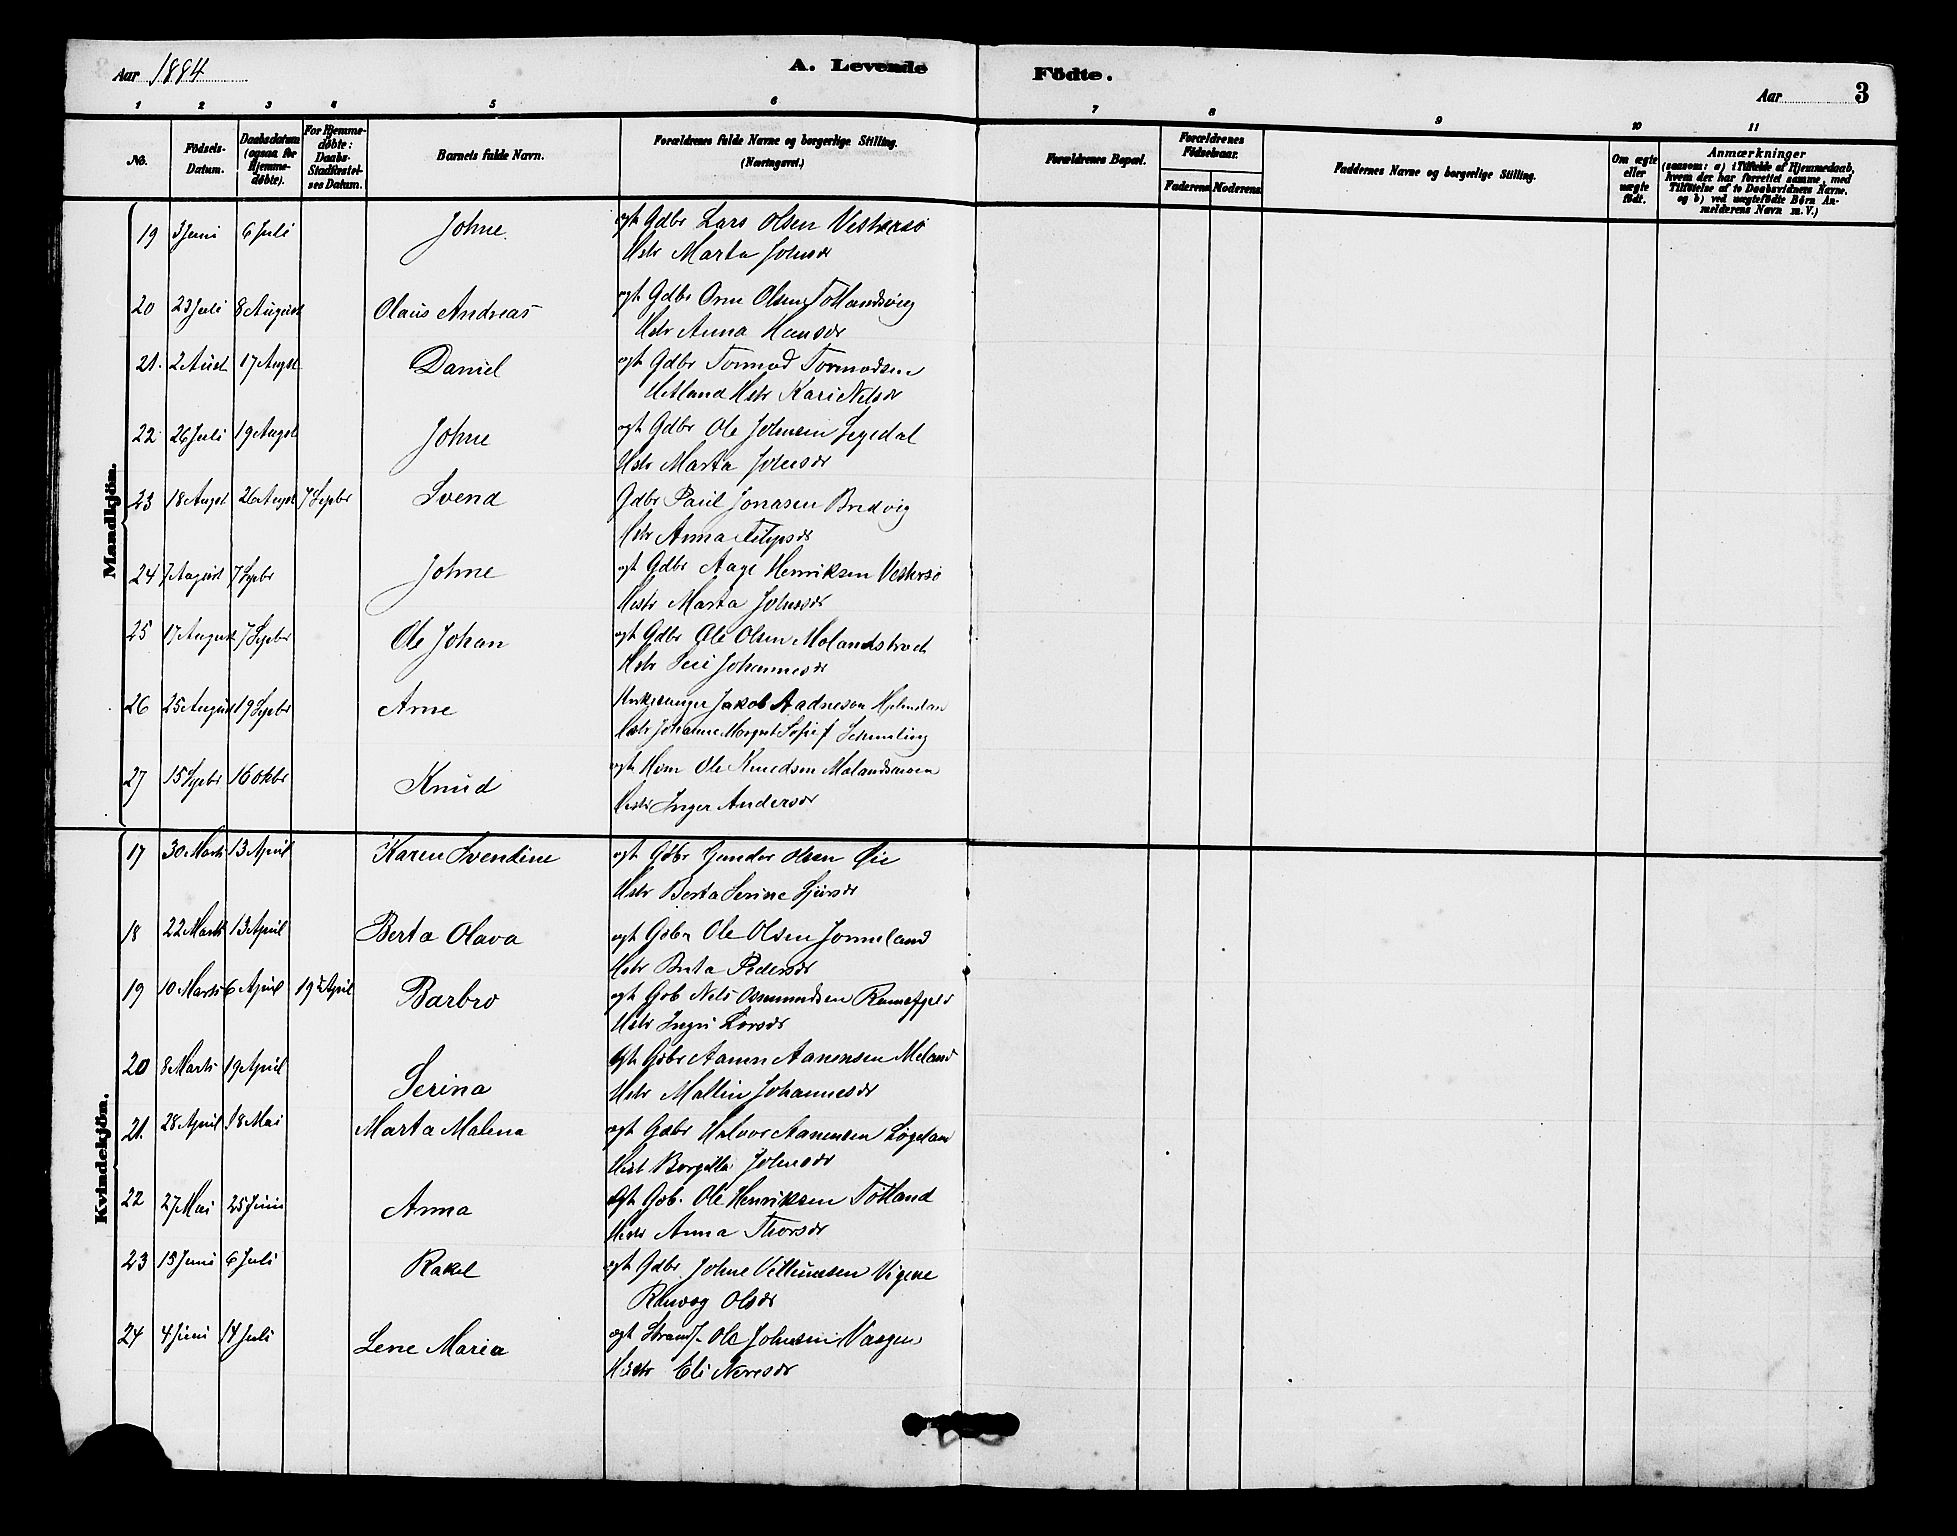 Aar 1884
A. Levende Födte.
Aar 3
1 2 3 4 5 6 7 8 9 10 11
No.
Födsels-Datum.
Daabsdatum (ogsaa for Hjemme-döbte).
For Hjemme-döbte: Daabs-Stadfæstel-ses Datum.
Barnets fulde Navn.
Forældrenes fulde Navne og borgerlige Stilling. (Næringsvei.)
Forældrenes Bopæl.
Forældrenes Födselsaar.
Faderens Moderens
Faddernes Navne og borgerlige Stilling.
Om ægte eller uægte födt.
Anmærkninger
(saasom: a) i Tilfælde af Hjemmedaab,
hvem der har forrettet samme, med
Tilföielse af to Daabsvidners Navne.
og b) ved uægtefödte Börn An-
melderens Navn m. V.)
Mandkjön.
19 3 Juni 6 Juli Johne ogt Gdbr Lars Olsen Vestersö
Hstr Marta Johnsdr
20 23 Juli 8 August Olaus Andreas ogt Gdbr Orm Olsen Totlandsvig
Hstr Anna Hansdr
21. 2 Aust 17 Augst Daniel ogt Gdbr Tormod Tormodsen
Hetland Hstr Kari Nelsdr
22 26 Juli 19 Augst Johne ogt Gdbr Ole Johnsen
Hstr Marta Johnsdr
23 18 Augst 26 Augst 7 Septbr Svend Gdbr Paul Jonasen Bredvig
Hstr Anna
24 7 August 7 Septbr Johne ogt Gdbr Aage Henriksen Vestersö
Hstr Marta Johnsdr
25 17 August 7 Septbr Ole Johan ogt Gdbr Ole Olsen
Hstr Siri Johannesdr
26 25 August 19 Septbr Arne Kirkesanger Jakob Aadneson
Hstr Johanne Margret Sofie
27 15 Septbr 16 Oktbr Knud ogt Hsm Ole Knudsen
Hstr Inger Andersdr
Kvindekjön.
17 30 Marts 13 April Karen Svendine ogt Gdbr Gunder Olsen Øie
Hstr Berta Serine Sjursdr
18 22 Marts 13 April Berta Olava ogt Gdbr Ole Olsen Jonneland
Hstr Brita Pedersdr
19 10 Marts 6 April 19 April Barbro ogt Gdb Nels Osmundsen
Hstr Ingri Larsdr
20 8 Marts 19 April Serina ogt Gdbr Aanen Aanensen Meland
Hstr Mallin Johannesdr
21. 28 April 18 Mai Marta Malena ogt Gdbr Halvor Aanensen
Hstr Borgilla Johnsdr
22 27 Mai 25 Juni Anna ogt Gdb. Ole Henriksen Totland
Hstr Anna Thorsdr
23 15 Juni 6 Juli Rakel ogt Gdbr Johne Villumsen Vigene
Ranveg Olsdr
24 4 Juni 14 Juli Lene Maria ogt Strands. Ole Johnsen Vaagen
Hstr Eli Neresdr